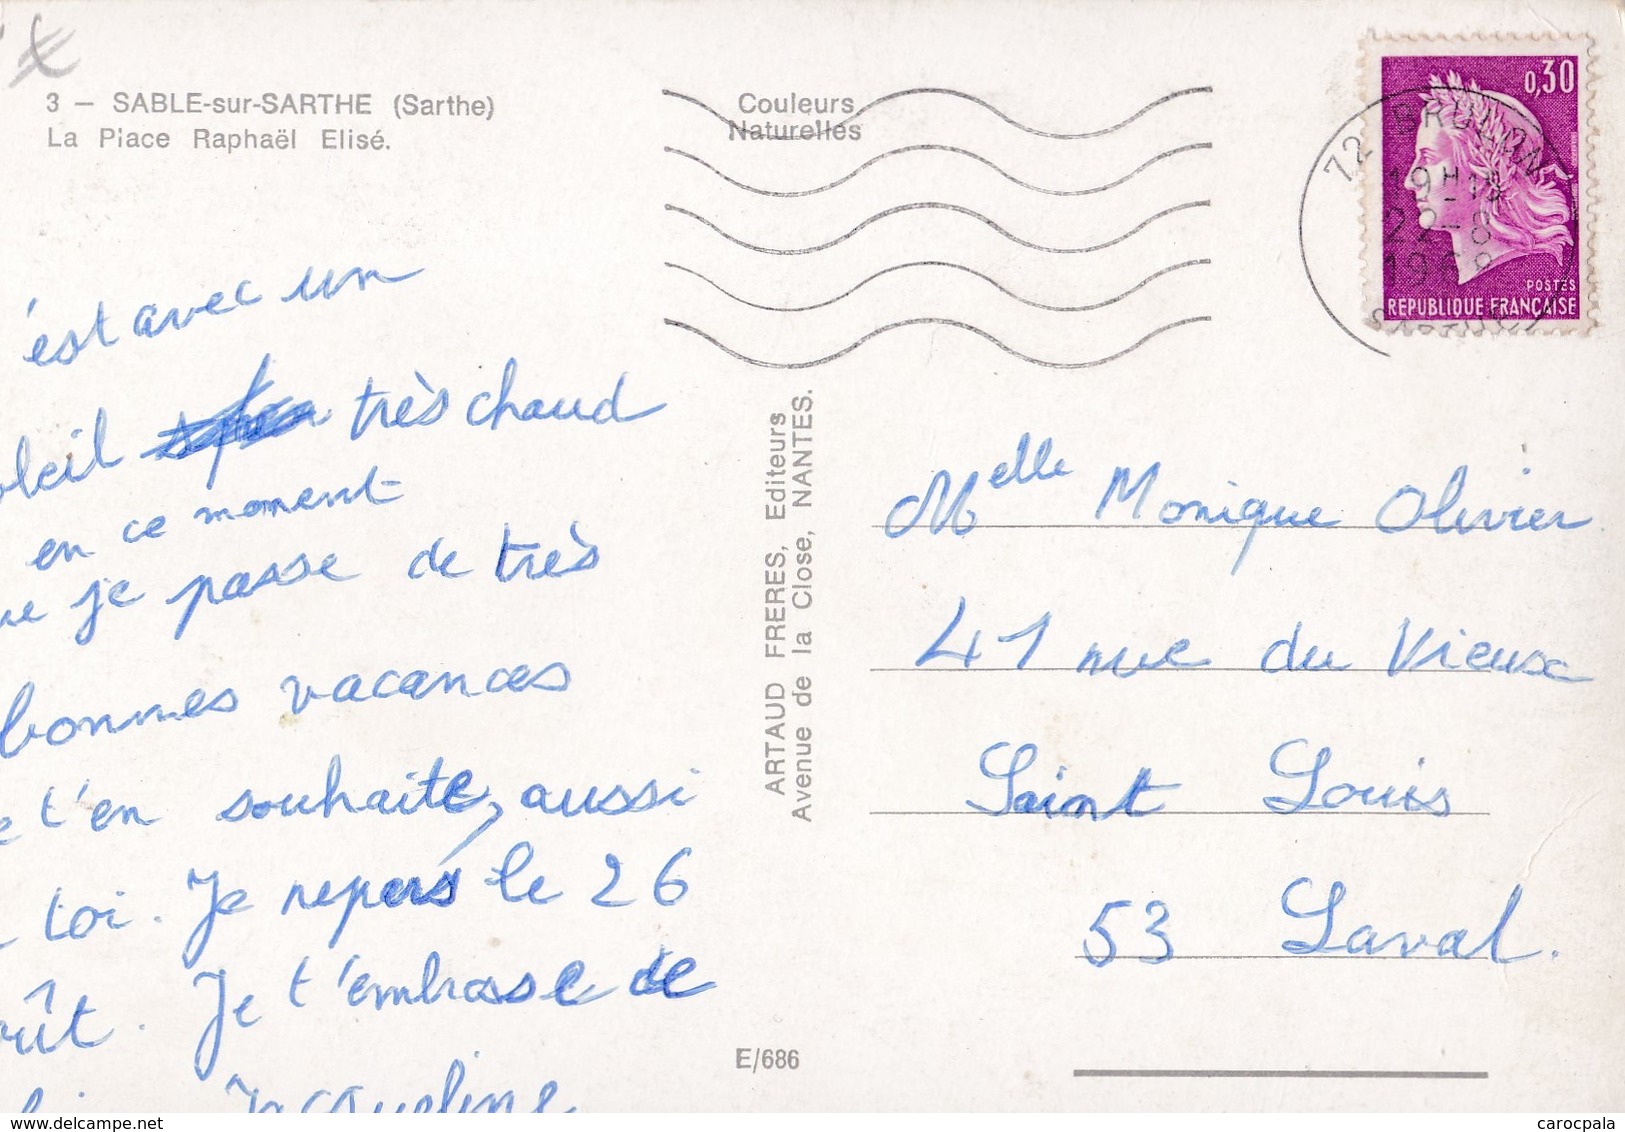 3 — SABLE-sur-SARTHE (Sarthe)
La Place Raphaël Elisé.
Couleurs
Naturelles
0,30
POSTES
REPUBLIQUE FRANÇAISE
72 BRULON
19H15
22-8
1968
SARTHE
'est avec un
oleil très chaud
en ce moment
ue je passe de très
bonnes vacances
e t'en souhaite, aussi
toi. Je repars le 26
oût. Je t'embrasse de
Jacqueline
ARTAUD FRERES, Editeurs
Avenue de la Close, NANTES.
E/686
Melle Monique Olivier
41 rue du Vieux
Saint Louis
53 Laval.
www.delcampe.net
carocpala